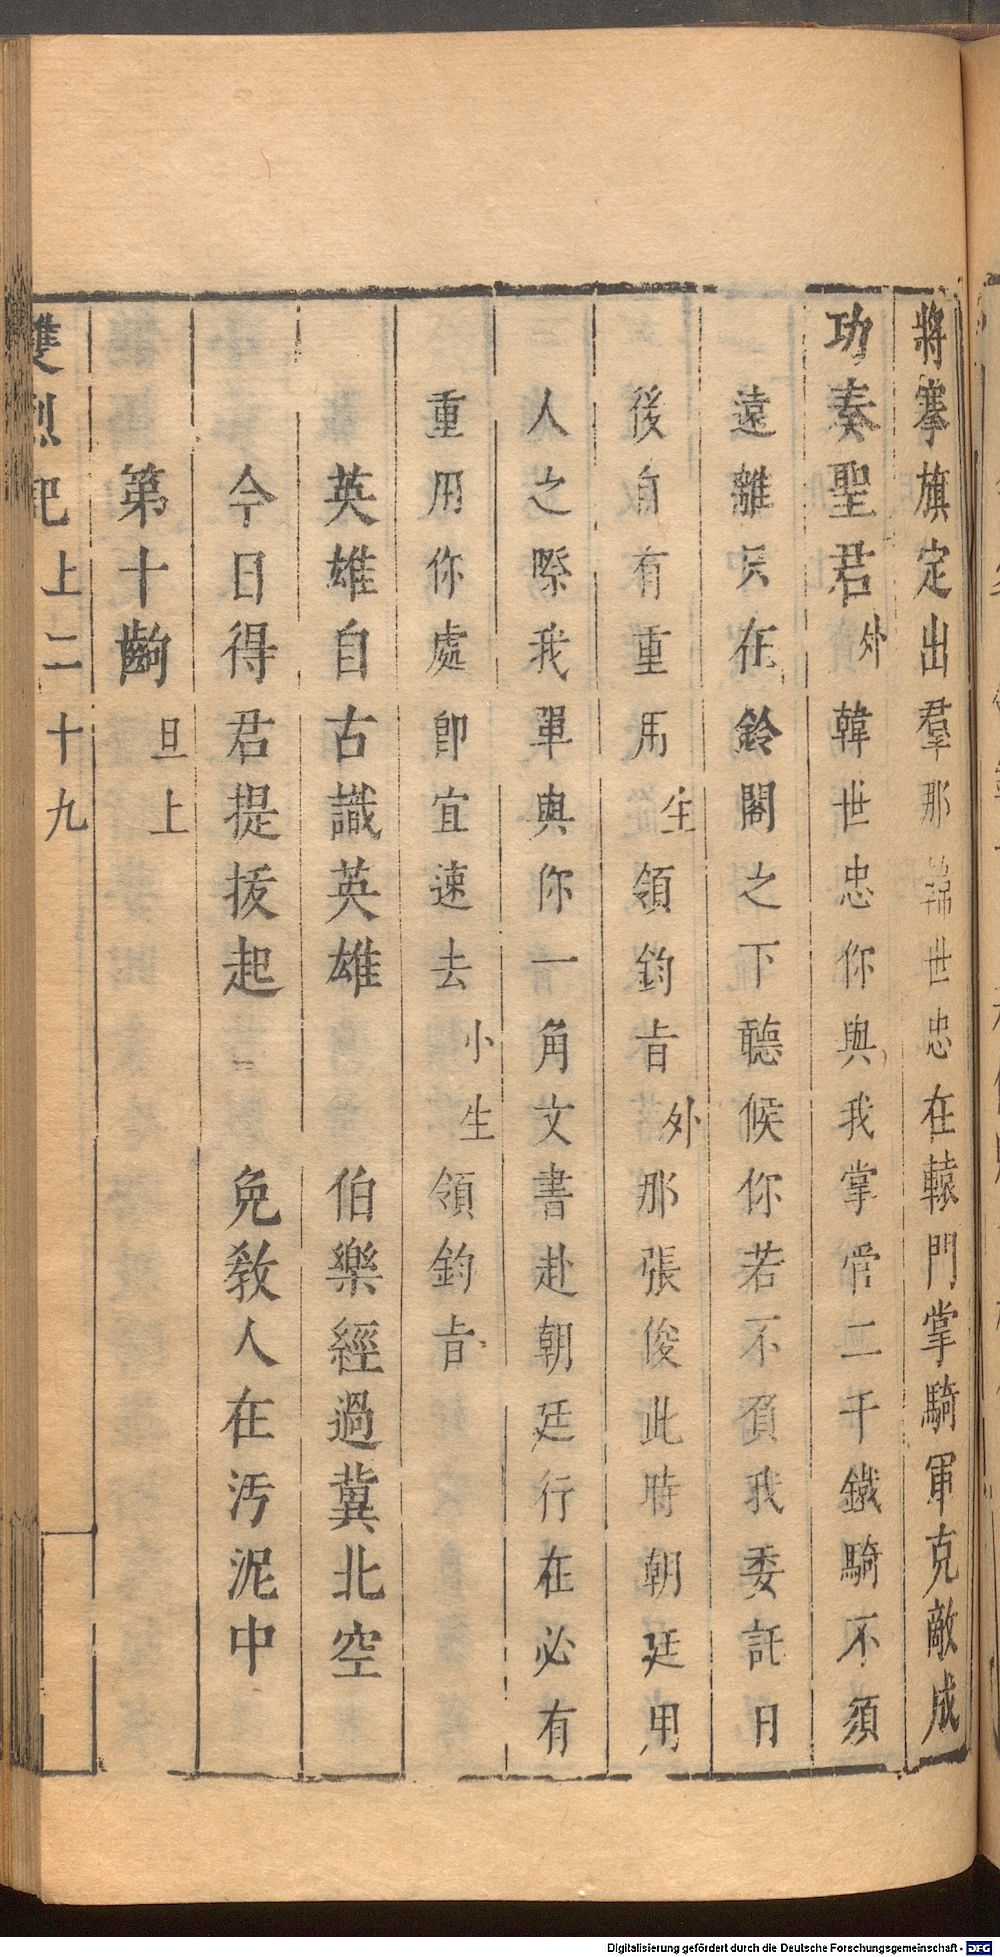 將搴旗定出羣那韓世忠在轅門掌騎軍克敵成
功奏聖君外韓世忠你與我掌管二千鐵騎不須
遠離只在鈴閣之下聽候你若不負我委託日
後自有重用生領鈞旨外那張俊此時朝廷用
人之際我單與你一角文書赴朝廷行在必有
重用你處卽宜速去小生領鈞旨
英雄自古識英雄 伯樂經過冀北空
今日得君提拔起 免敎人在汚泥中
第十齣 旦上
雙烈記上二十九
Digitalisierung gefördert durch die Deutsche Forschungsgemeinschaft - DFG